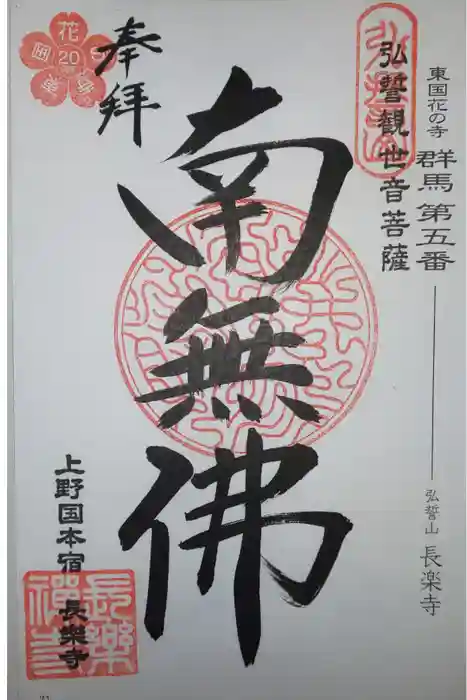 東国花の寺 群馬第五番 弘誓山 長楽寺
弘誓観世音菩薩
奉拝
南無佛
上野国本宿 長樂寺
花
20
長樂禪寺